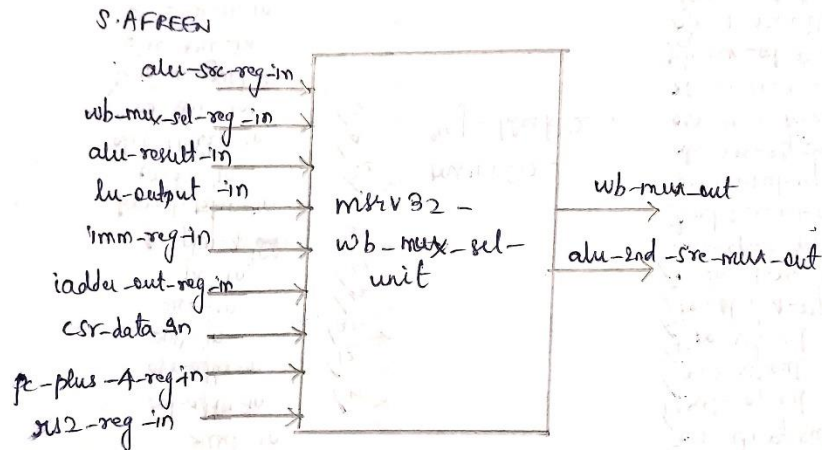 S.AFREEN
alu-src-reg-in
wb-mux-sel-reg-in
alu-result-in
lu-output -in
imm-reg-in
iadder-out-reg-in
csr-data in
pc-plus-4-reg-in
rs2-reg-in
msrv32-
wb-mux-sel-
unit
wb-mux-out
alu-2nd-src-mux-out